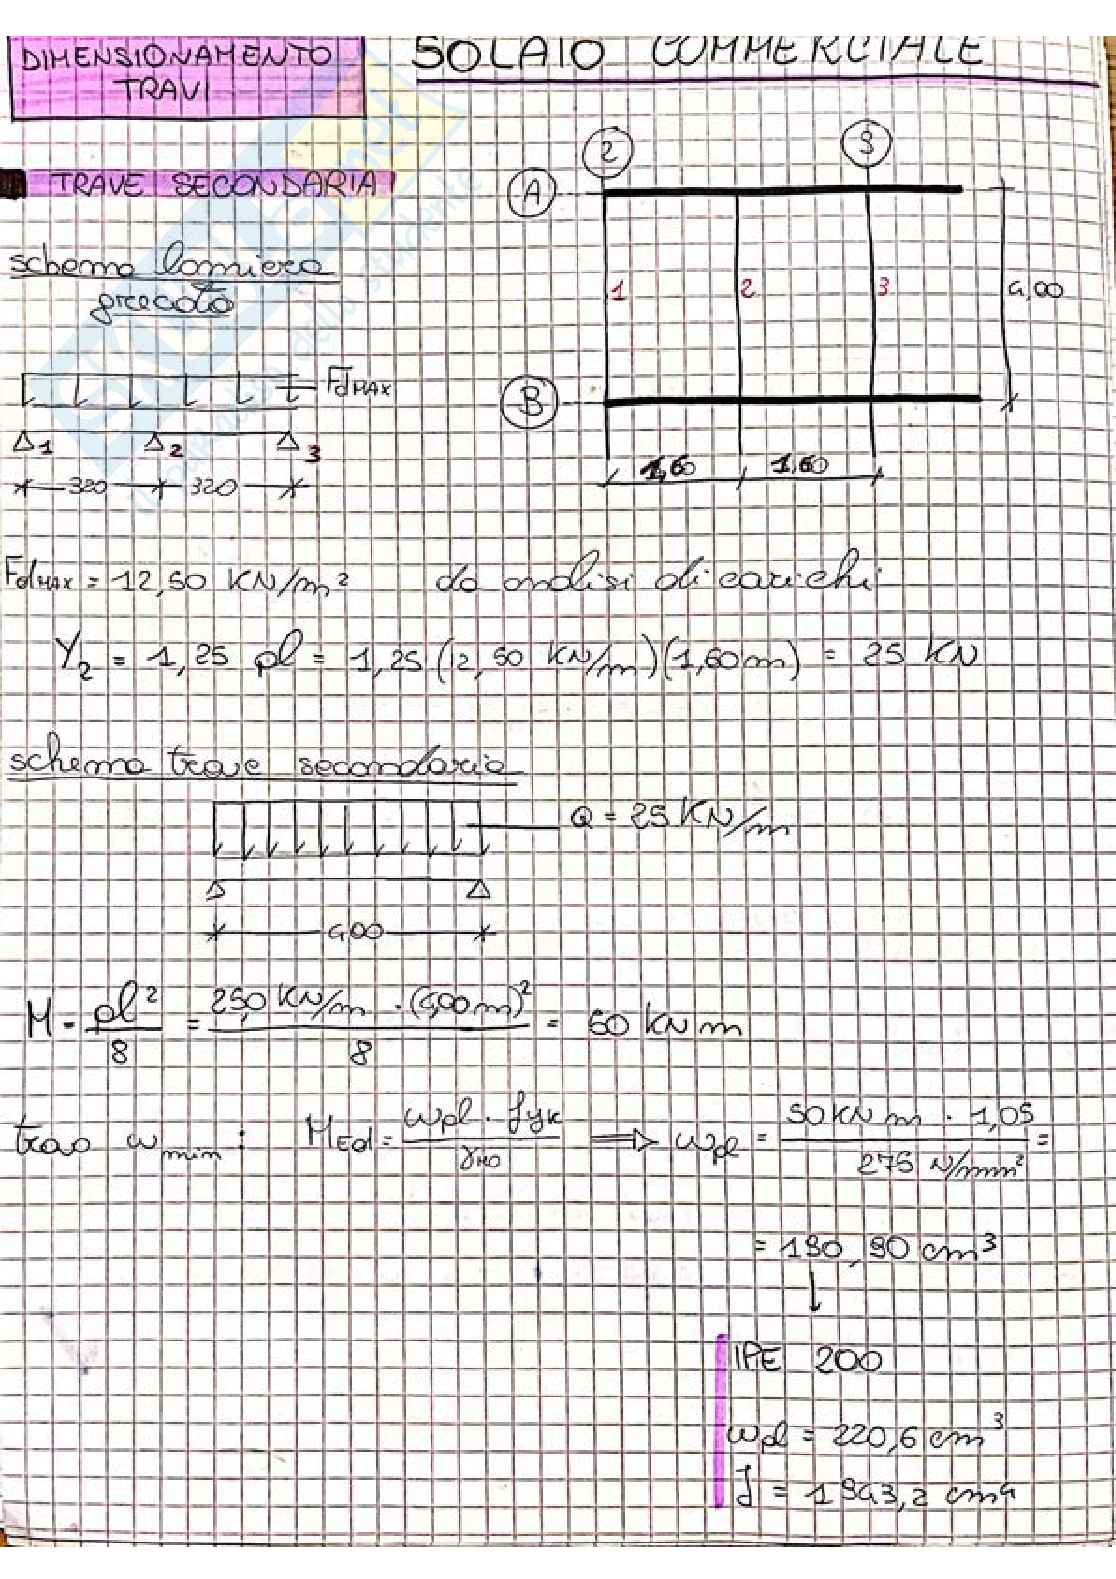 DIMENSIONAMENTO
TRAVI
SOLAIO COMMERCIALE
TRAVE SECONDARIA
schema lamiera
grecata
2
3
A
1
2
3
4,00
B
1,60
1,60
FdMAX
1
2
3
320
320
FdMAX = 12,50 KN/m²
da analisi di carichi
Y2 = 1,25 pl = 1,25 (12,50 KN/m)(1,60m) = 25 KN
schema trave secondaria
Q = 25 KN/m
4,00
M = pl²/8 = 25,0 KN/m · (4,00m)²/8 = 50 KN m
trovo ωmin: MEd = ωpl · fyk/γM0 ⟹ ωpl = 50KN m · 1,05/275 N/mm² =
= 190,90 cm³
↓
IPE 200
ωpl = 220,6 cm³
J = 1943,2 cm4